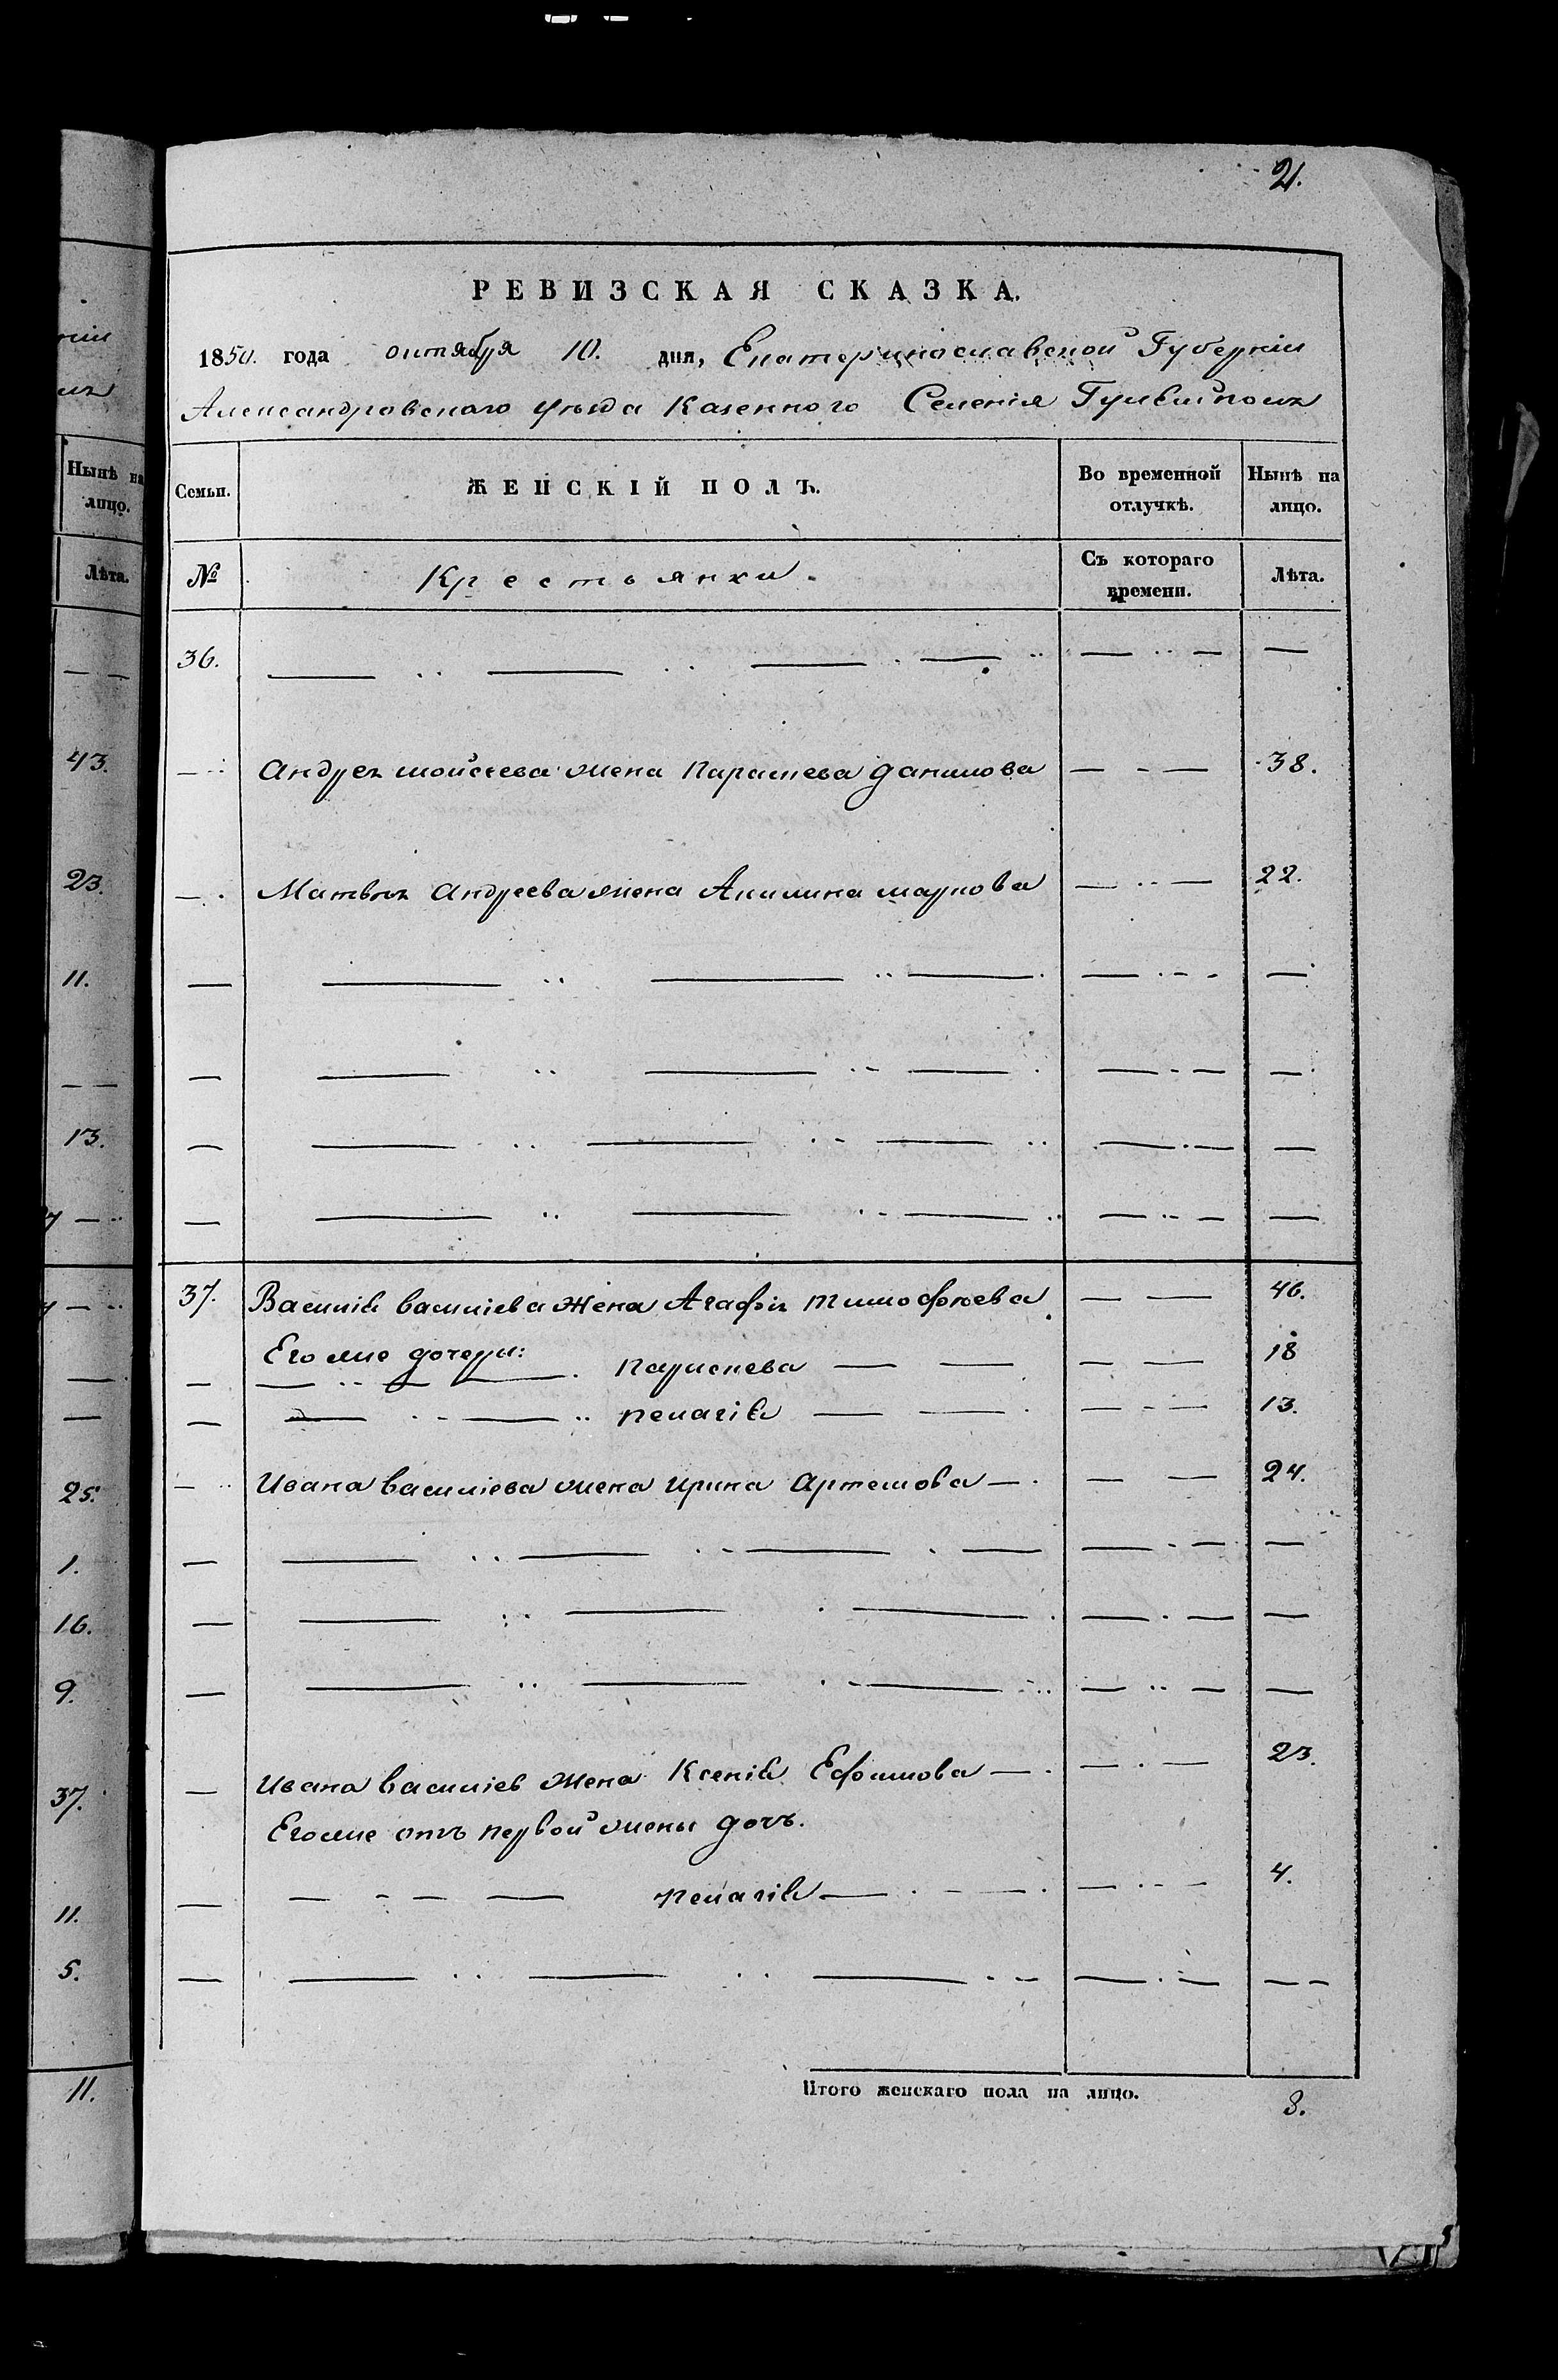 нія
Нынѣ на
лицо.
Лѣта.
— —
43.
23.
11.
— —
13.
25.
1.
16.
9.
37.
11.
5.
11.
21.
РЕВИЗСКАЯ СКАЗКА.
1850. года октября 10. дня, Екатеринославской Губерніи
Александровскаго уѣзда Казенного Селенія Гуляйполя
Семьи. ЖЕНСКІЙ ПОЛЪ. Во временной отлучкѣ. Нынѣ на лицо.
№ Крестьянки. Съ котораго времени. Лѣта.
36. — — — — — — —
— Андрея мойсеева жена Параскева данилова — — 38.
— Матвѣя андреева жена Акилина маркова — — 22.
— — — — — — —
— — — — — — —
— — — — — — —
— — — — — — —
37. Василія василіева жена Агафія тимофѣева — — 46.
Его же дочери:
— — — параскева — — — — 18
— — — пелагія — — — — 13.
— Ивана василіева жена ирина артемова — — — 24.
— — — — — — — —
— — — — — — —
— — — — — — —
— Ивана василіев жена Ксенія Ефимова — — — 23.
Его же отъ первой жены дочь.
— — — — пелагія — — — — 4.
— — — — — — — —
Итого женскаго пола на лицо. 8.